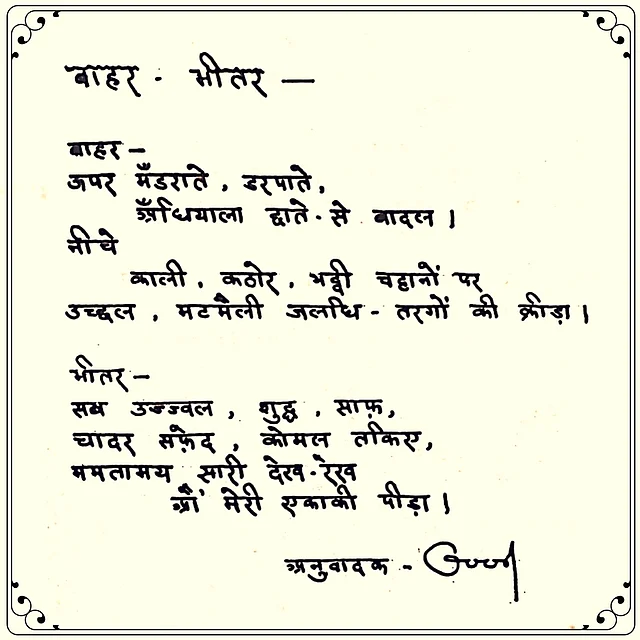 बाहर - भीतर —
बाहर —
ऊपर मँडराते, डरपाते,
अँधियाला छाते-से बादल ।
नीचे
काली, कठोर, भद्दी चट्टानों पर
उच्छल, मटमैली जलधि - तरगों की क्रीड़ा ।
भीतर —
सब उज्ज्वल, शुद्ध, साफ़,
चादर सफ़ेद, कोमल तकिए,
ममतामय सारी देख-रेख
औ' मेरी एकाकी पीड़ा ।
अनुवादक -